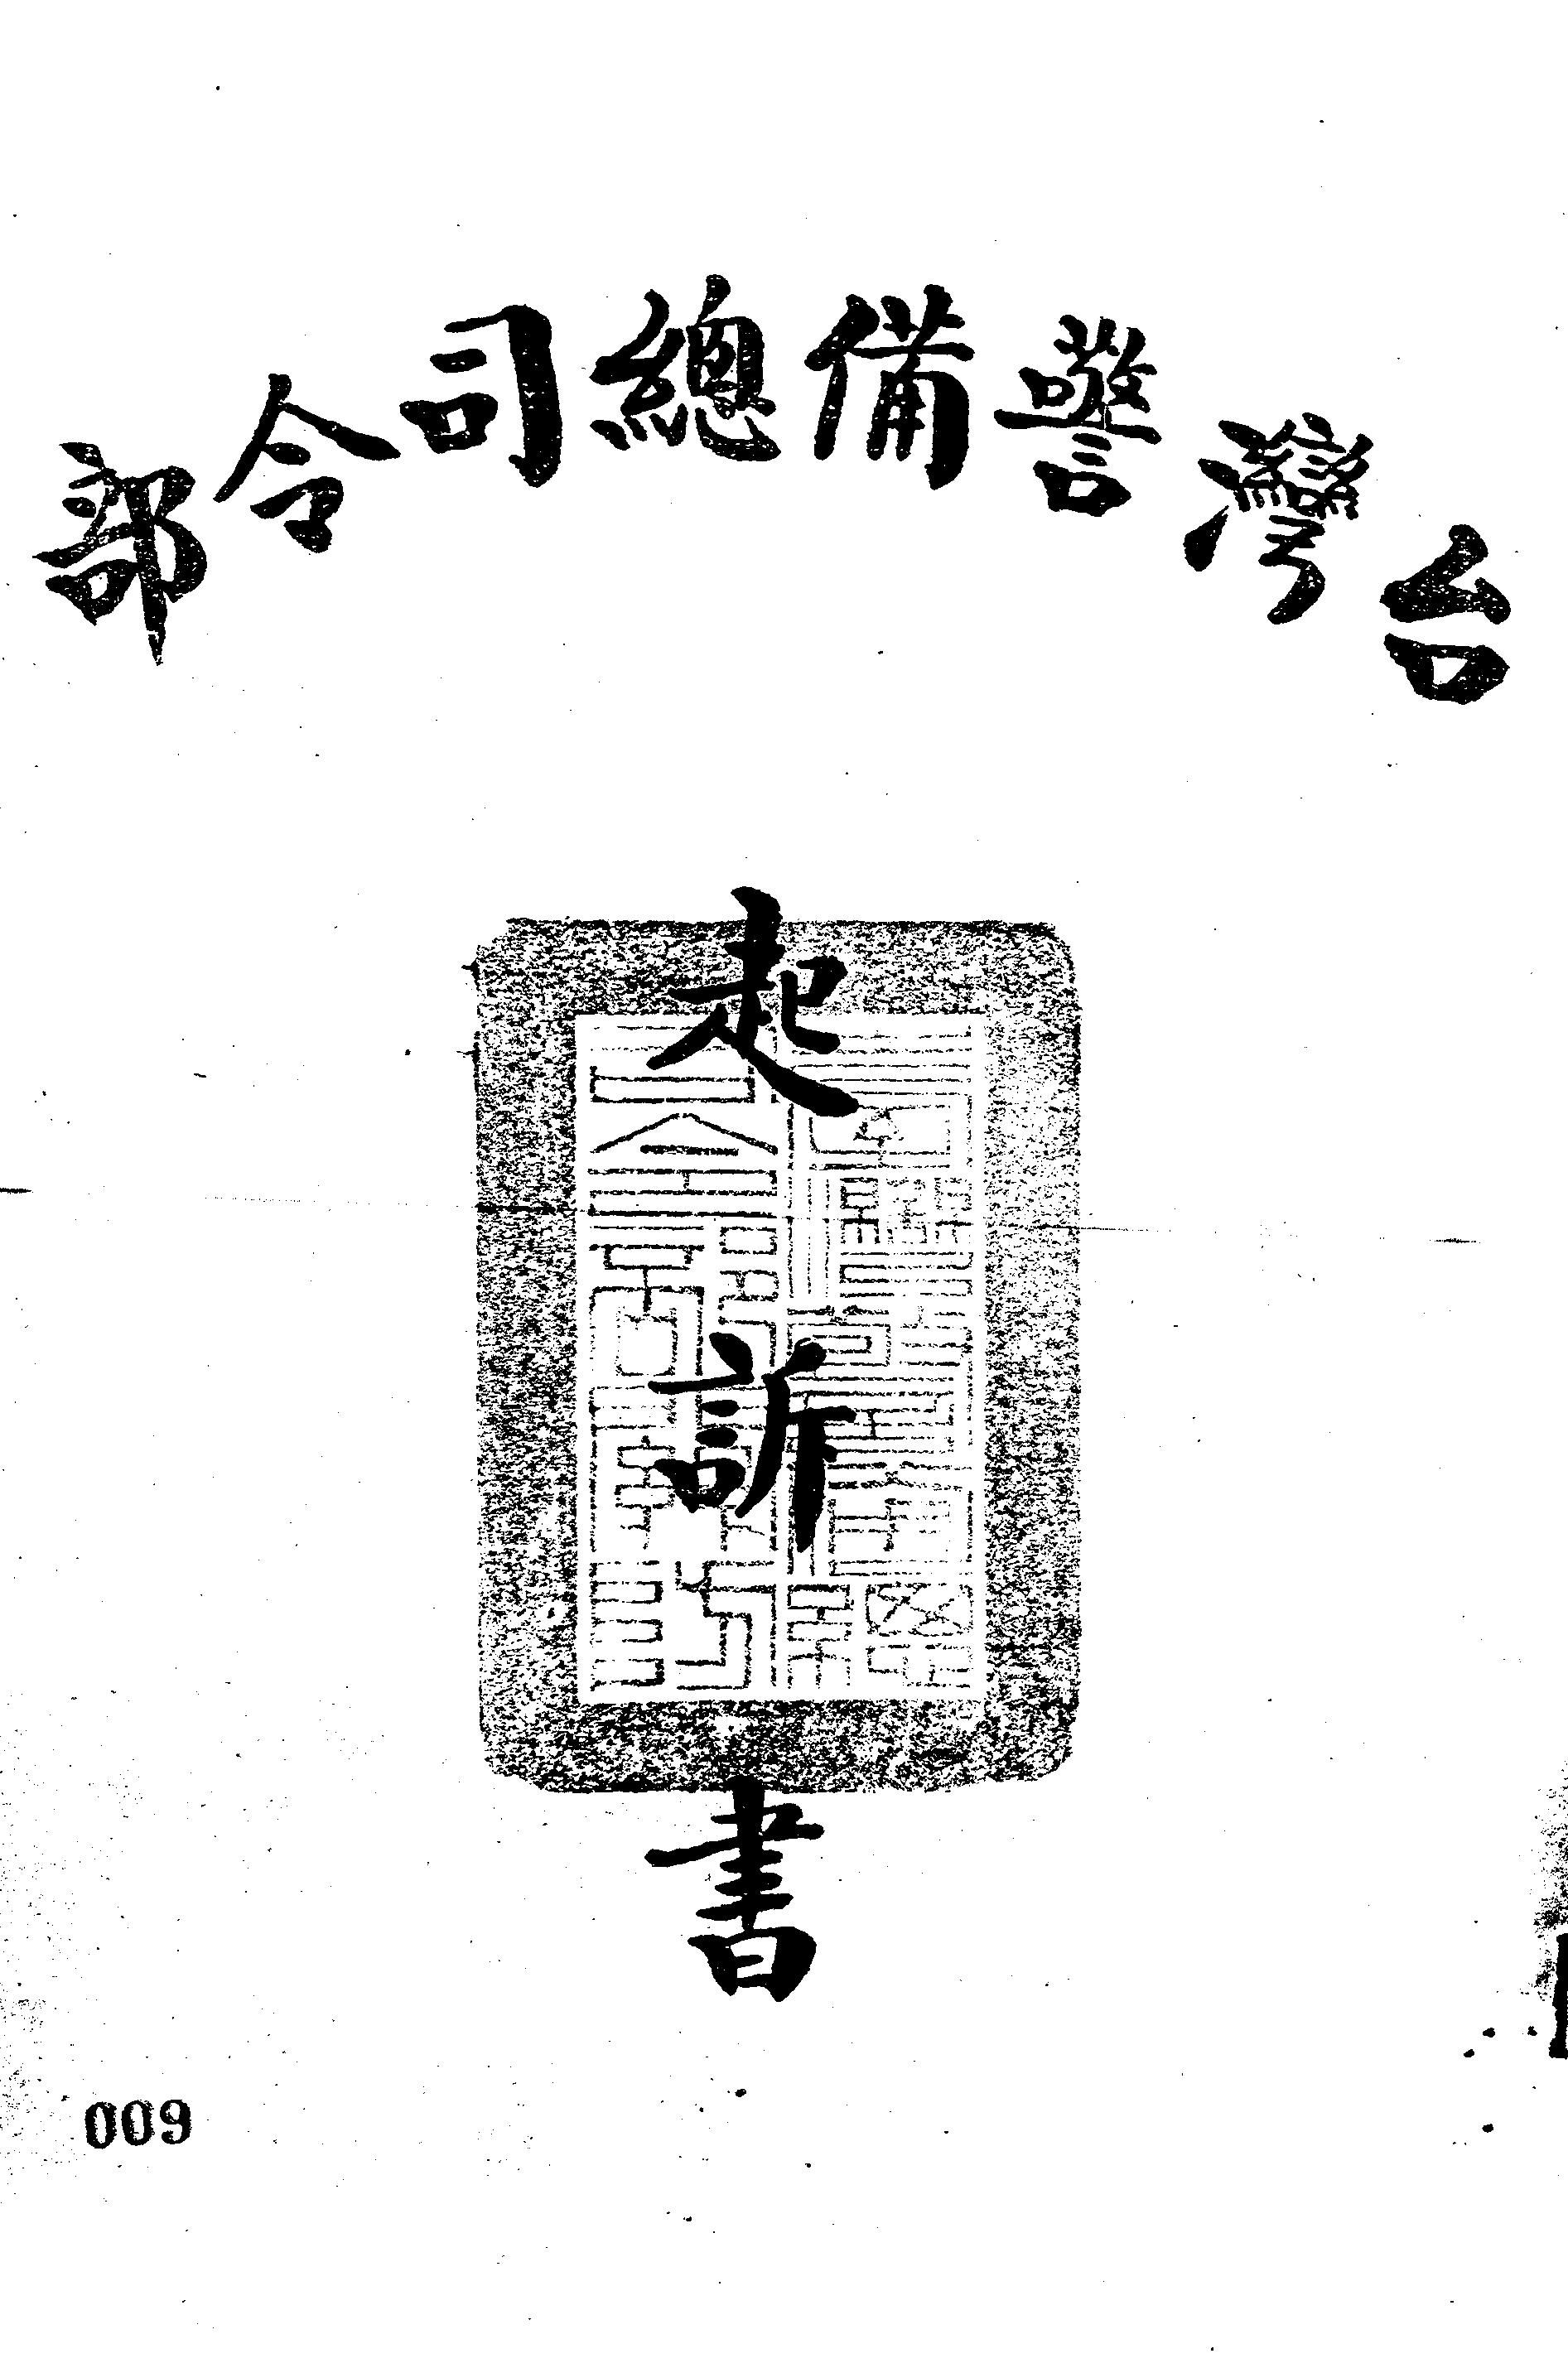 台灣警備總司令部
起訴書
009